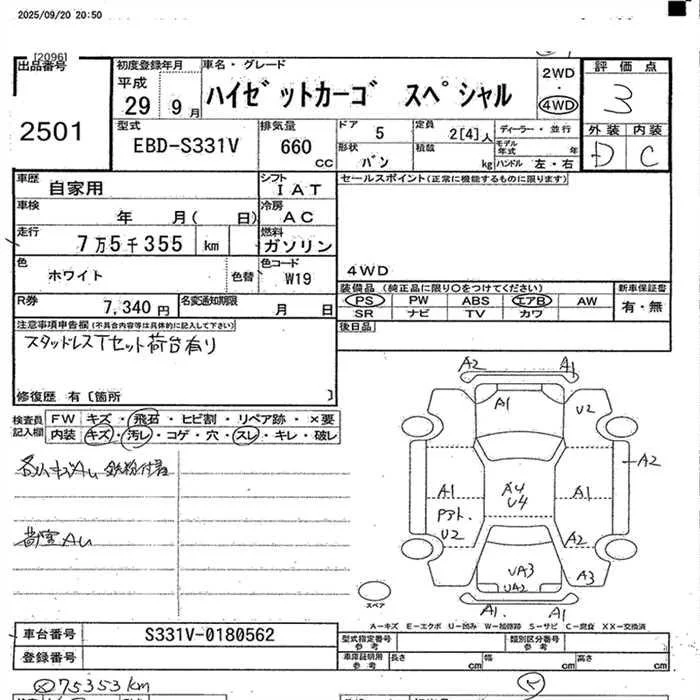 2025/09/20 20:50
[2096]
出品番号
2501
初度登録年月
平成
29 9月
車名・グレード
ハイゼットカーゴ スペシャル
2WD
・
4WD
評価点
3
外装 内装
D C
型式
EBD-S331V
排気量
660
CC
ドア
5
形状
バン
定員
2[4]人
積載
kg
ディーラー・並行
モデル年式 年
ハンドル 左・右
車歴
自家用
シフト
IAT
車検
年 月( 日)
冷房
AC
走行
7万5千355 km
燃料
ガソリン
色
ホワイト
色替
色コード
W19
R券
7,340円
名変通知期限
月 日
セールスポイント(正常に機能するものに限ります)
4WD
装備品(純正品に限り○をつけてください)
PS PW ABS エアB AW
SR ナビ TV カワ
新車保証書
有・無
後日品
注意事項申告欄(不具合内容等は具体的に記入して下さい)
スタッドレスTセット荷台有り
修復歴 有〔箇所 〕
検査員記入欄
FW キズ・飛石・ヒビ割・リペア跡・×要
内装 キズ・汚レ・コゲ・穴・スレ・キレ・破レ
A2 A1
A1
U2
A2
A1
A4
U4
A1
U2
A2
UA3
UA2
A3
A1. A1
スペア
A-キズ E-エクボ U-凹み W-補修跡 S-サビ C-腐食 XX-交換済
車台番号
S331V-0180562
登録番号
型式指定番号
参考
類別区分番号
参考
車庫証明用
参考
長さ cm 幅 cm 高さ cm
75353km